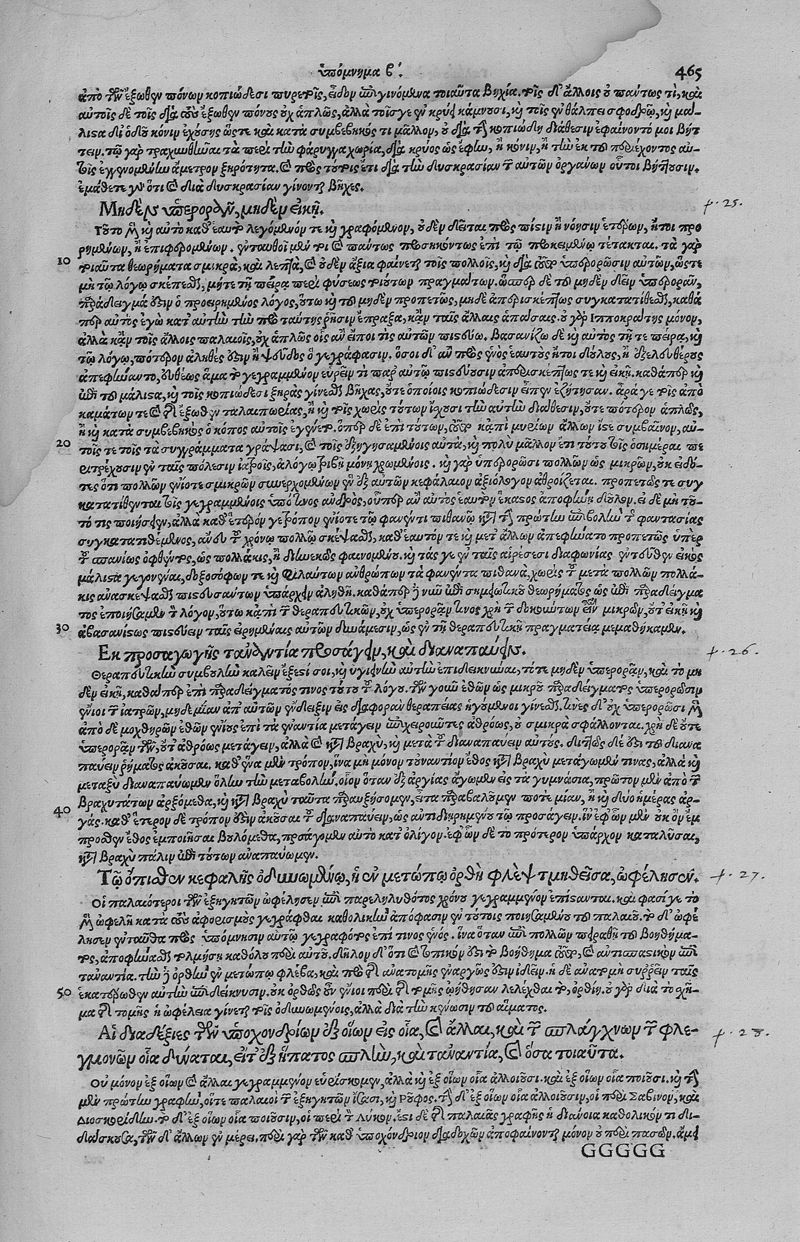 ὑπόμνημα β΄. 465
ἀπὸ τῶν ἔξωθεν πόνων κοπιώδεσι πυρετοῖς, εἶδον ἐπιγινόμενα τοιαῦτα βηχία. τοῖς δ' ἄλλοις ὁ παντως τι, καὶ
αὐτοῖς δὲ τοῖς διὰ τοὺς ἔξωθεν πόνους οὐχ ἁπλῶς, ἀλλὰ τοῖς γε ἐν κρύει κάμνουσι, καὶ τοῖς ἐν θάλπει σφοδρῷ, καὶ μά-
λιστα δι' ὁδοῦ κόνιν ἐχούσης ὥστε καὶ κατὰ συμβεβηκός τι μᾶλλον, οὐ διὰ τὴν κοπιώδη διάθεσιν ἐφαίνοντό μοι βήτ-
τειν. τῷ γὰρ τραχυνθῆναι τὰ περὶ τὴν φάρυγγα χωρία, διὰ κρύος ὡς ἔφην, ἢ κόνιν, ἢ τὴν ἐκ τοῦ περιέχοντος αὐ-
τοῖς ἐγγινομένην ἄμετρον ξηρότητα. καὶ πρὸς τούτοις ἔτι διὰ τὴν δυσκρασίαν τῶν αὐτῶν ὀργάνων οὗτοι βήττουσιν.
ἐμάθετε γὰρ ὅτι καὶ διὰ δυσκρασίαν γίνονται βῆχες.
Μηδὲν ὑπερορᾶν, μηδὲν εἰκῆ. 25.
Τοῦτο μὲν καὶ αὐτὸ καθ' ἑαυτὸ λεγόμενόν τε καὶ γραφόμενον, οὐδὲν δεῖται πρὸς πίστιν ἢ νόησιν ἑτέρων, ἤτοι προ
ρημένων, ἢ ἐπιφερομένων. ἐνταυθοῖ μέν τοι καὶ πάντως προσηκόντως ἐπὶ τῷ προκειμένῳ τέτακται. τὰ γὰρ
10 τοιαῦτα θεωρήματα σμικρὰ, καὶ λεπτὰ, καὶ οὐδὲν ἄξια φαίνεται τοῖς πολλοῖς, καὶ διὰ τοῦτο ὑπερορῶσιν αὐτῶν, ὥστε
μὴ τῷ λόγῳ σκέπεσθαι, μήτε τῇ πείρᾳ περὶ φύσεως τούτων πραγμάτων. ὥσπερ δὲ τοῦ μηδὲν δεῖν ὑπερορᾶν,
παράδειγμά ἐστιν ὁ προειρημένος λόγος, οὕτω καὶ τοῦ μηδὲν προπετῶς, μηδὲ ἀπερισκέπτως συγκατατίθεσθαι, καθά
περ αὐτὸς ἐγὼ κατ' αὐτὴν τὴν πρὸ ταύτης ῥῆσιν ἔπραξα, κἀν ταῖς ἄλλαις ἁπάσαις. οὐ γὰρ Ἱπποκράτης μόνον,
ἀλλὰ κἀν τοῖς ἄλλοις παλαιοῖς, οὐχ ἁπλῶς οἷς ἂν εἴποι τις αὐτῶν πιστεύω. βασανίζω δὲ καὶ αὐτὸς τῇ τε πείρᾳ, καὶ
τῷ λόγῳ, πότερον ἀληθές ἐστιν ἢ ψεῦδος ὃ γεγράφασιν. ὅσοι δ' ἂν πρὸς ἑνὸς ἑαυτοὺς ἤτοι δούλους, ἢ ἐξελευθέρους
ἀπεφήναντο, εὐθέως ἅμα τῷ γεγραμμένον εὑρεῖν τι παρ' αὐτῷ πιστεύουσιν ἀπερισκέπτως τε καὶ εἰκῆ. καθάπερ καὶ
ἐπὶ τοῦ μάλιστα, καὶ τοῖς κοπιώδεσι ξηρὰς γίνεσθαι βῆχας, οὔτε ὁποίοις κοπιώδεσιν εἶπεν ἐζήτησαν. ἆρά γε τοῖς ἀπὸ
καμάτων τε καὶ τῆς ἔξωθεν ταλαιπωρίας, ἢ καὶ τοῖς χωρὶς τούτων ἴσχουσι τὴν αὐτὴν διάθεσιν, οὔτε πότερον ἁπλῶς,
ἢ καὶ κατὰ συμβεβηκὸς ὁ κόπος αὐτοῖς ἐγένετο. ὅπερ δὲ ἐπὶ τούτων, τοῦτο κἀπὶ μυρίων ἄλλων ἴσε συμβαῖνον, αὐ-
20 τοῖς τε τοῖς τὰ συγγράμματα γράψασι, καὶ τοῖς ἐξηγησαμένοις αὐτὰ, καὶ πολὺ μᾶλλον ἔτι τούτοις τοῖς ὁσημέραι πε
ριτρέχουσιν ἐν ταῖς πόλεσιν ἰατροῖς, ἀλόγῳ τριβῇ μόνῃ χρωμένοις. καὶ γὰρ ὑπερορῶσι πολλῶν ὡς μικρῶν, οὐκ εἰδό-
τες ὅτι πολλῶν ἐνίοτε σμικρῶν συνερχομένων ἓν ἐξ αὐτῶν κεφάλαιον ἀξιόλογον ἀθροίζεται. προπετῶς τε συγ
κατατίθενται τοῖς γεγραμμένοις ὑπό τινος ἀνδρὸς, οὗπερ ἂν αὐτὸς ἑαυτὸν ἕκαστος ἀποφήνῃ δοῦλον. εἰ δὲ μὴ τοῦ-
τό τις ποιήσειεν, ἀλλὰ καθ' ἕτερόν γε τρόπον ἐνίοτε τῷ φανέντι πιθανῷ κατὰ τὴν πρώτην ἐπιβολὴν τῆς φαντασίας
συγκατατιθέμενος, ἄνευ τοῦ χρόνῳ πολλῷ σκέψασθαι, καθ' ἑαυτόν τε καὶ μετ' ἄλλων ἀπεφήνατο προπετῶς ὑπὲρ
τοῦ σπανίως ὀφθέντος, ὡς πολλάκις, ἢ διηνεκῶς φαινομένου. καὶ τάς γε ἐν ταῖς αἱρέσεσι διαφωνίας ἐντεῦθεν εἰκὸς
μάλιστα γεγονέναι, δοξοσόφων τε καὶ φιλαύτων ἀνθρώπων τὰ φανέντα πιθανὰ, χωρὶς τοῦ μετὰ πολλῶν πολλά-
κις ἀνασκέψασθαι πιστευσάντων ὑπάρχειν ἀληθῆ. καθάπερ οὖν νῦν ἐπὶ σημειωτικοῦ θεωρήματος ὡς ἐπὶ παραδείγμα
τος ἐποιησάμην τὸν λόγον, οὕτω κἀπὶ τῶν θεραπευτικῶν, οὐχ ὑπερορᾶν τινος χρὴ τῶν δοκούντων εἶναι μικρῶν, οὔτ' εἰκῆ καὶ
30 ἀβασανίστως πιστεύειν ταῖς εἰρημέναις αὐτῶν δυνάμεσιν, ὡς ἐν τῇ θεραπευτικῇ πραγματείᾳ μεμαθήκαμεν.
Ἐκ προσαγωγῆς τἀναντία προσάγειν, καὶ διαναπαύειν. 26.
Θεραπευτικὴν συμβουλὴν καλεῖν ἔξεστί σοι, καὶ ὑγιεινὴν αὐτὴν ἐπιδεικνύναι, τότε μηδὲν ὑπερορᾶν, καὶ τὸ μη
δὲν εἰκῆ, καθάπερ ἐπὶ παραδείγματός τινος τούτου τοῦ λόγου. τῶν γοῦν ἐθῶν ὡς μικροῦ παραδείγματος ὑπερορῶσιν
ἔνιοι τῶν ἰατρῶν, μηδεμίαν ἀπ' αὐτῶν ἔνδειξιν εἰς διαφορὰν θεραπείας ἡγούμενοι γίνεσθαι. τινὲς δ' οὐχ ὑπερορῶσι μὲν
ἀπὸ δὲ μοχθηρῶν ἐθῶν ἐνίους ἐπὶ τὰ ἐναντία μετάγειν ἐπιχειροῦντες ἀθρόως, οὐ σμικρὰ σφάλλονται. χρὴ δὲ οὔτε
ὑπερορᾶν τῶν, οὔτ' ἀθρόως μετάγειν, ἀλλὰ καὶ κατὰ βραχὺ, καὶ μετὰ τοῦ διαναπαύειν αὐτούς. διττῶς δέ ἐστι τοῦ διανα
παύειν ῥήματος ἀκοῦσαι. καθ' ἕνα μὲν τρόπον, ἵνα μὴ μόνον τοὐναντίον ἔθος κατὰ βραχὺ μετάγωμέν τινας, ἀλλὰ καὶ
μεταξὺ διαναπαύωμεν ὅλην τὴν μεταβολὴν, οἷον ὅταν ἐξ ἀργίας ἄγωμεν εἰς τὰ γυμνάσια, πρῶτον μὲν ἀπὸ τῶν
βραχυτάτων ἀρξόμεθα, καὶ κατὰ βραχὺ ταῦτα παραυξήσομεν, εἶτα παραβαλοῦμέν ποτε μίαν, ἢ καὶ δύο ἡμέρας ἀρ-
40 γάς. καθ' ἕτερον δὲ τρόπον ἐστὶν ἀκοῦσαι τοῦ διαναπαύειν, ὡς ἀντιδιῃρημένου τῷ προσάγειν. ἵν' ἐφ' ὧν μὲν οὐκ ὂν ἔμ
προσθεν ἔθος ἐμποιῆσαι βουλόμεθα, προσάγωμεν αὐτὸ κατ' ὀλίγον. ἐφ' ὧν δὲ τὸ πρότερον ὑπάρχον καταλῦσαι,
κατὰ βραχὺ πάλιν ἐπὶ τούτων ἀναπαύωμεν.
Τῷ ὄπισθεν κεφαλῆς ὀδυνωμένῳ, ἡ ἐν μετώπῳ ὀρθὴ φλὲψ τμηθεῖσα, ὠφέλησεν. 27.
Οἱ παλαιότεροι τῶν ἐξηγητῶν ὠφέλησεν ἐπὶ παρεληλυθότος χρόνου γεγραμμένον ἐπίστανται. καί φασί γε τὸ
μὲν ὠφελῆ κατὰ τοὺς ἀφορισμοὺς γεγράφθαι καθολικὴν ἀπόφασιν ἐν τούτοις ποιησαμένου τοῦ παλαιοῦ. τὸ δ' ὠφέ
λησεν ἐνταῦθα πρὸς ὑπόμνησιν αὐτῷ γεγραφότος ἐπί τινος ἑνός. ἵνα ὅταν ἐπὶ πολλῶν πειραθῇ τοῦ βοηθήμα-
τος, ἀποφήνασθαι τολμήσῃ καθόλου περὶ αὐτοῦ. δῆλον δ' ὅτι καὶ τοπικόν ἐστι τὸ βοήθημα τοῦτο, καὶ ἀντισπαστικὸν ἐπὶ
τἀναντία. τὴν γὰρ ὀρθὴν ἐν μετώπῳ φλέβα, καὶ πρὸ τῆς ἀνατομῆς ἐναργῶς ἐστιν ἰδεῖν. ἡ δὲ ἀνατομὴ συρρεῖν ταῖς
50 ἑκατέρωθεν αὐτὴν ἐπιδείκνυσιν. οὐκ ὀρθῶς οὖν ἔνιοι περὶ τομῆς ᾠήθησαν λελέχθαι τὸ, ὀρθὴν. οὐ γὰρ διὰ τὸ σχῆ-
μα τῆς τομῆς ἡ ὠφέλεια γίνεται τοῖς ὀδυνωμένοις, ἀλλὰ διὰ τὴν κένωσιν τοῦ αἵματος.
Αἱ διαδέξιες τῶν ὑποχονδρίων ἐξ οἵων ἐς οἷα, καὶ ἄλλαι, καὶ τῶν σπλάγχνων τῶν φλε- 28.
γμονῶν οἷα δύναται, εἴτ' ἐξ ἥπατος σπλὴν, καὶ τἀναντία, καὶ ὅσα τοιαῦτα.
Οὐ μόνον ἐξ οἵων καὶ ἄλλαι γεγραμμένον εὑρίσκομεν, ἀλλὰ καὶ ἐξ οἵων οἷα ἀλλοιοῦσι. καὶ ἐξ οἵων οἷα ποιοῦσι. καὶ τὴν
μὲν πρώτην γραφὴν, οἵτε παλαιοὶ τῶν ἐξηγητῶν ἴσασι, καὶ Ῥοῦφος. τὴν δ' ἐξ οἵων οἷα ἀλλοιοῦσιν, οἱ περὶ Σαβῖνον, καὶ
Διοσκορίδην. τὸ δ' ἐξ οἵων οἷα ποιοῦσιν, οἱ περὶ τὸν Λύκον. ἔστι δὲ τῆς παλαιᾶς γραφῆς ἡ διάνοια καθολικόν τι δι-
δάσκουσα, τῶν δ' ἄλλων ἐν μέρει. περὶ γὰρ τῶν καθ' ὑποχόνδριον διαδοχῶν ἀποφαίνονται μόνον οὐ περὶ πασῶν. ἀμε
GGGGG